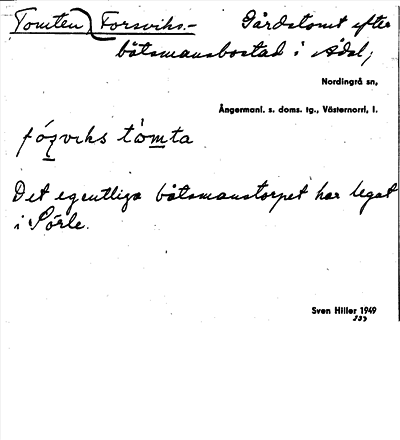 Tomten, Forsviks.- Gårdstomt efter
båtsmansbostad i Ådal;
Nordingrå sn,
Ångermanl. s. doms. tg., Västernorrl, l.
fó̱rviks tòmta
Det egentliga båtsmanstorpet har legat
i Sörle.
Sven Hiller 1949